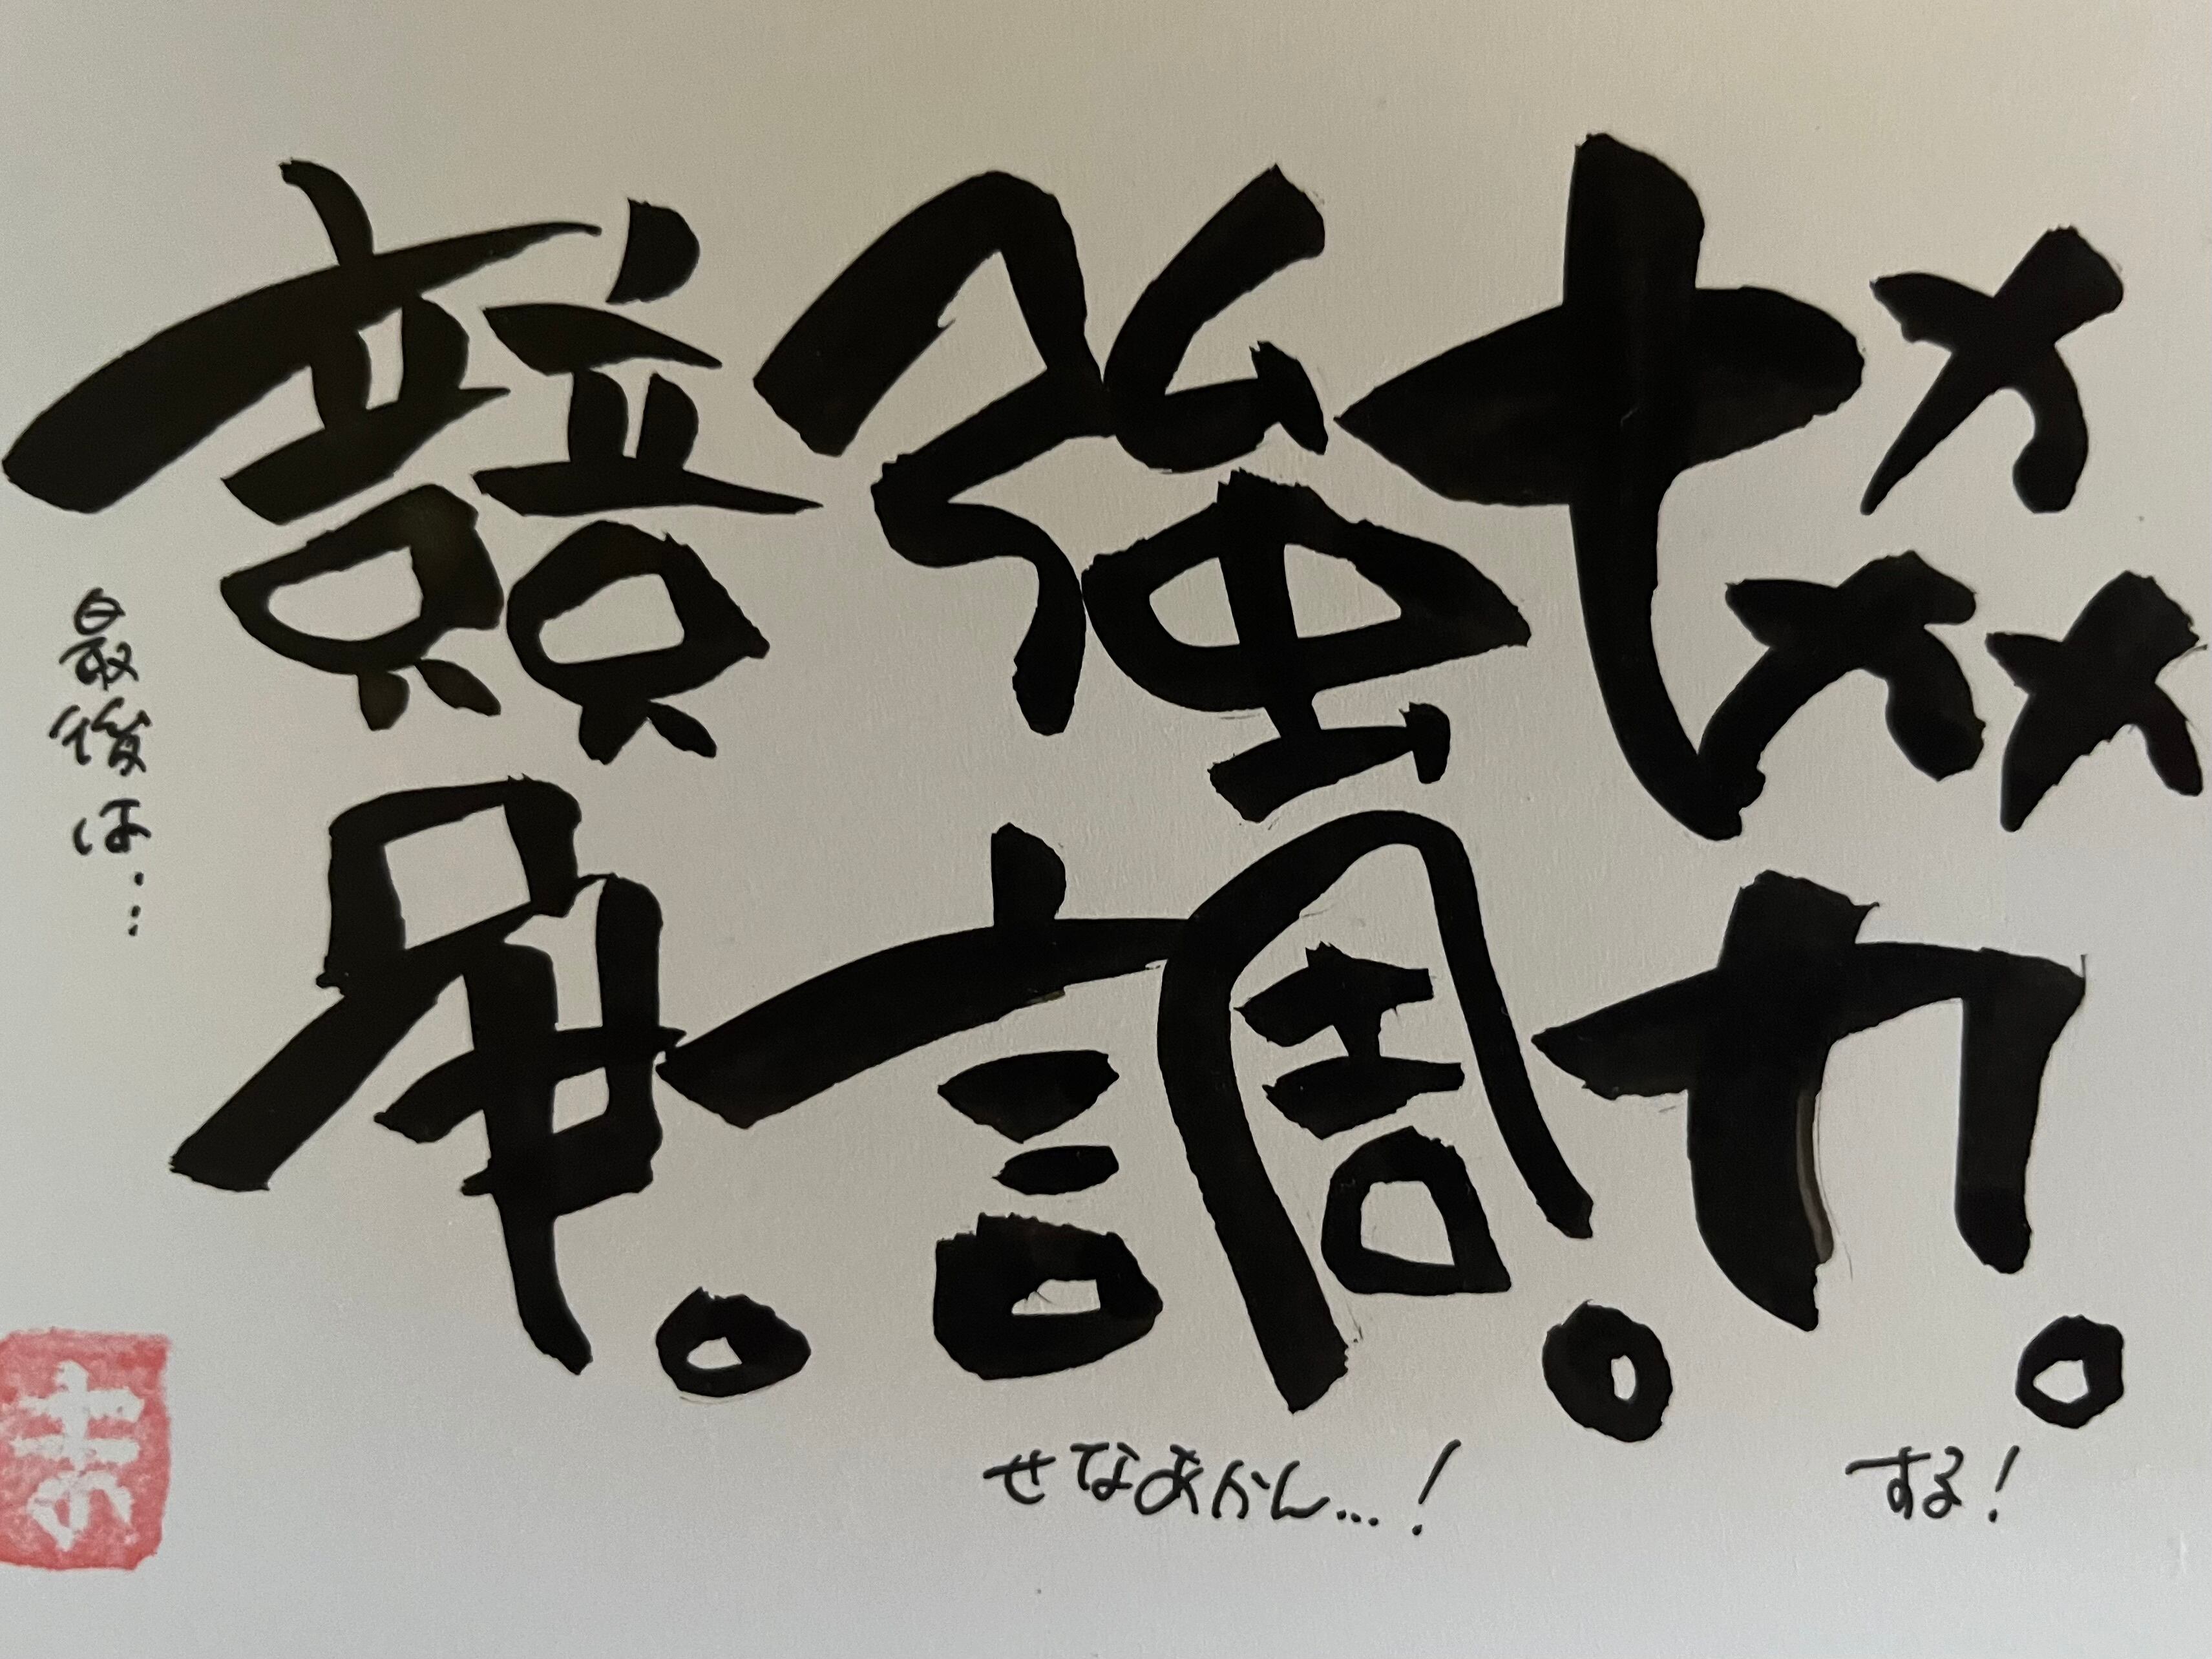 協力。
する!
強調。
せなあかん…!
競争。
最後は…